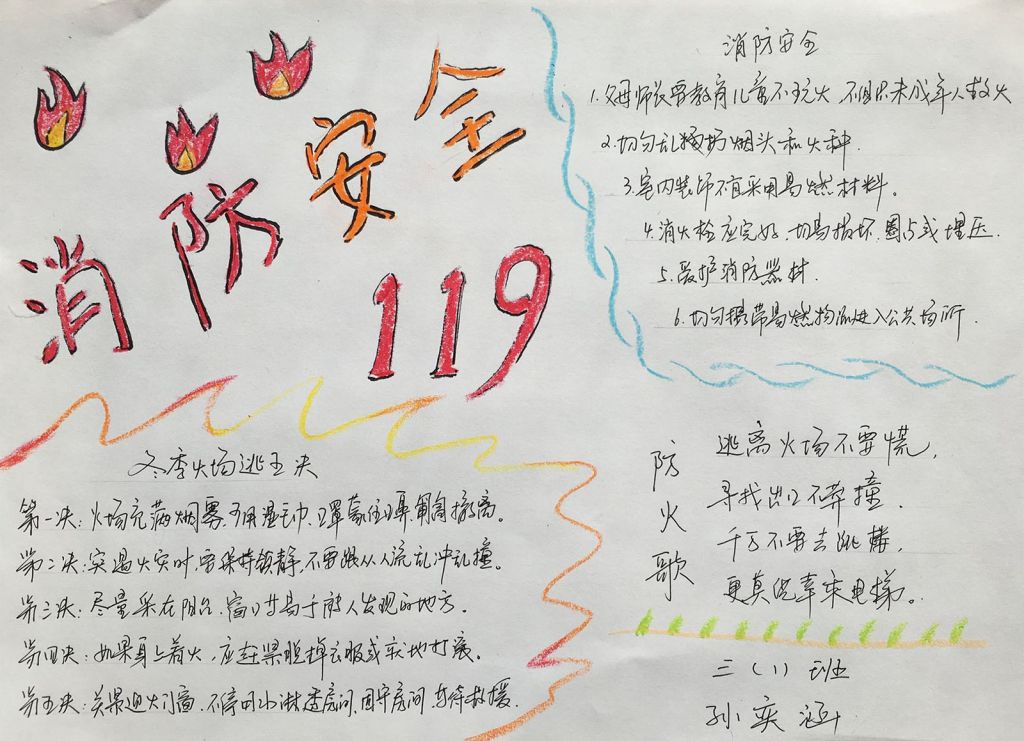 消防安全
119
消防安全
1.父母师长要教育儿童不玩火 不组织未成年人救火
2.切勿乱扔烟头和火种.
3.室内装饰不宜采用易燃材料。
4.消火栓应完好,切勿损坏、圈占或埋压.
5.爱护消防器材.
6.切勿携带易燃物品进入公共场所.
冬季火场逃五决
第一决:火场充满烟雾,可用湿毛巾、口罩蒙住口鼻,匍匐撤离。
第二决:突遇火灾时,要保持镇静,不要跟从人流乱冲乱撞。
第三决:尽量呆在阳台、窗口等易于被人发现的地方。
第四决:如果身上着火,应赶紧脱掉衣服或就地打滚。
第五决:关紧迎火门窗,不停用水淋透房间,固守房间,等待救援.
防火歌
逃离火场不要慌,
寻找出口不乱撞.
千万不要去跳楼,
更莫侥幸乘电梯。
三(1)班
孙奕涵